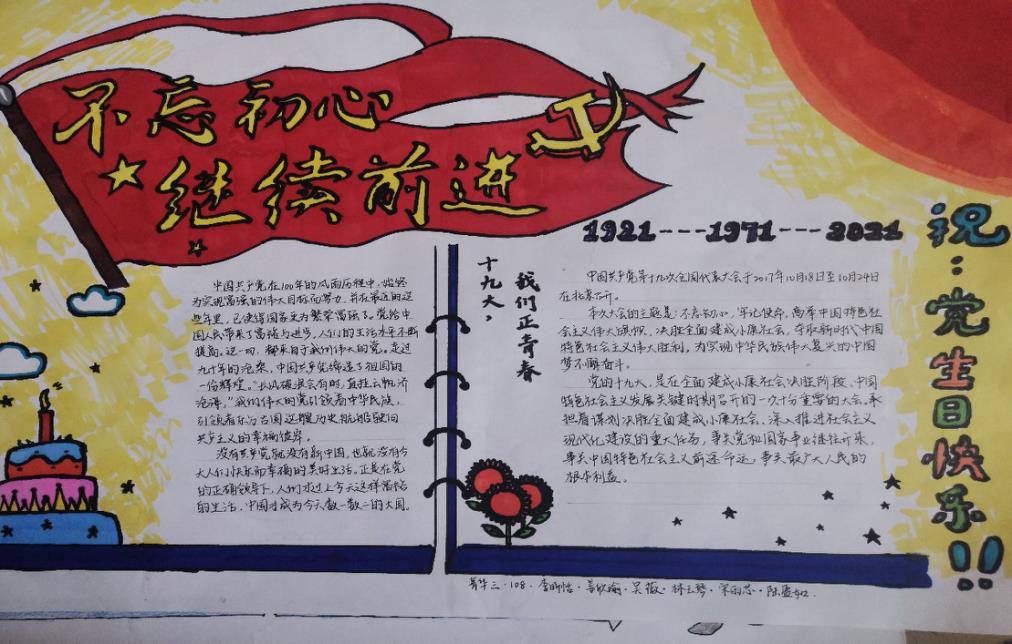 不忘初心
继续前进
1921---1971---2021
祝:党生日快乐!!
中国共产党在100年的风雨历程中,始终
为实现富强的伟大目标而努力,并在最近的这
些年里,已使得国家更为繁荣富强了。党给中
国人民带来了富裕与进步,人们的生活水平不断
提高。这一切,都来自于我们伟大的党。走过
九十年的沧桑,中国共产党缔造了祖国的
一份辉煌。"长风破浪会有时,直挂云帆济
沧海,"我们伟大的党引领着中华民族,
引领着东方古国这艘历史船舶驶向
共产主义的幸福彼岸。
没有共产党就没有新中国,也就没有今
天人们快乐而幸福的美好生活。正是在党
的正确领导下,人们才过上今天这样富裕
的生活,中国才成为今天数一数二的大国。
十九大,
我们正青春
中国共产党第十九次全国代表大会于2017年10月18日至10月24日
在北京召开。
本次大会的主题是:不忘初心,牢记使命,高举中国特色社
会主义伟大旗帜,决胜全面建成小康社会,夺取新时代中国
特色社会主义伟大胜利,为实现中华民族伟大复兴的中国
梦不懈奋斗。
党的十九大,是在全面建成小康社会决胜阶段、中国
特色社会主义发展关键时期召开的一次十分重要的大会。承
担着谋划决胜全面建成小康社会、深入推进社会主义
现代化建设的重大任务,事关党和国家事业继往开来,
事关中国特色社会主义前途命运,事关最广大人民的
根本利益。
三·108·李